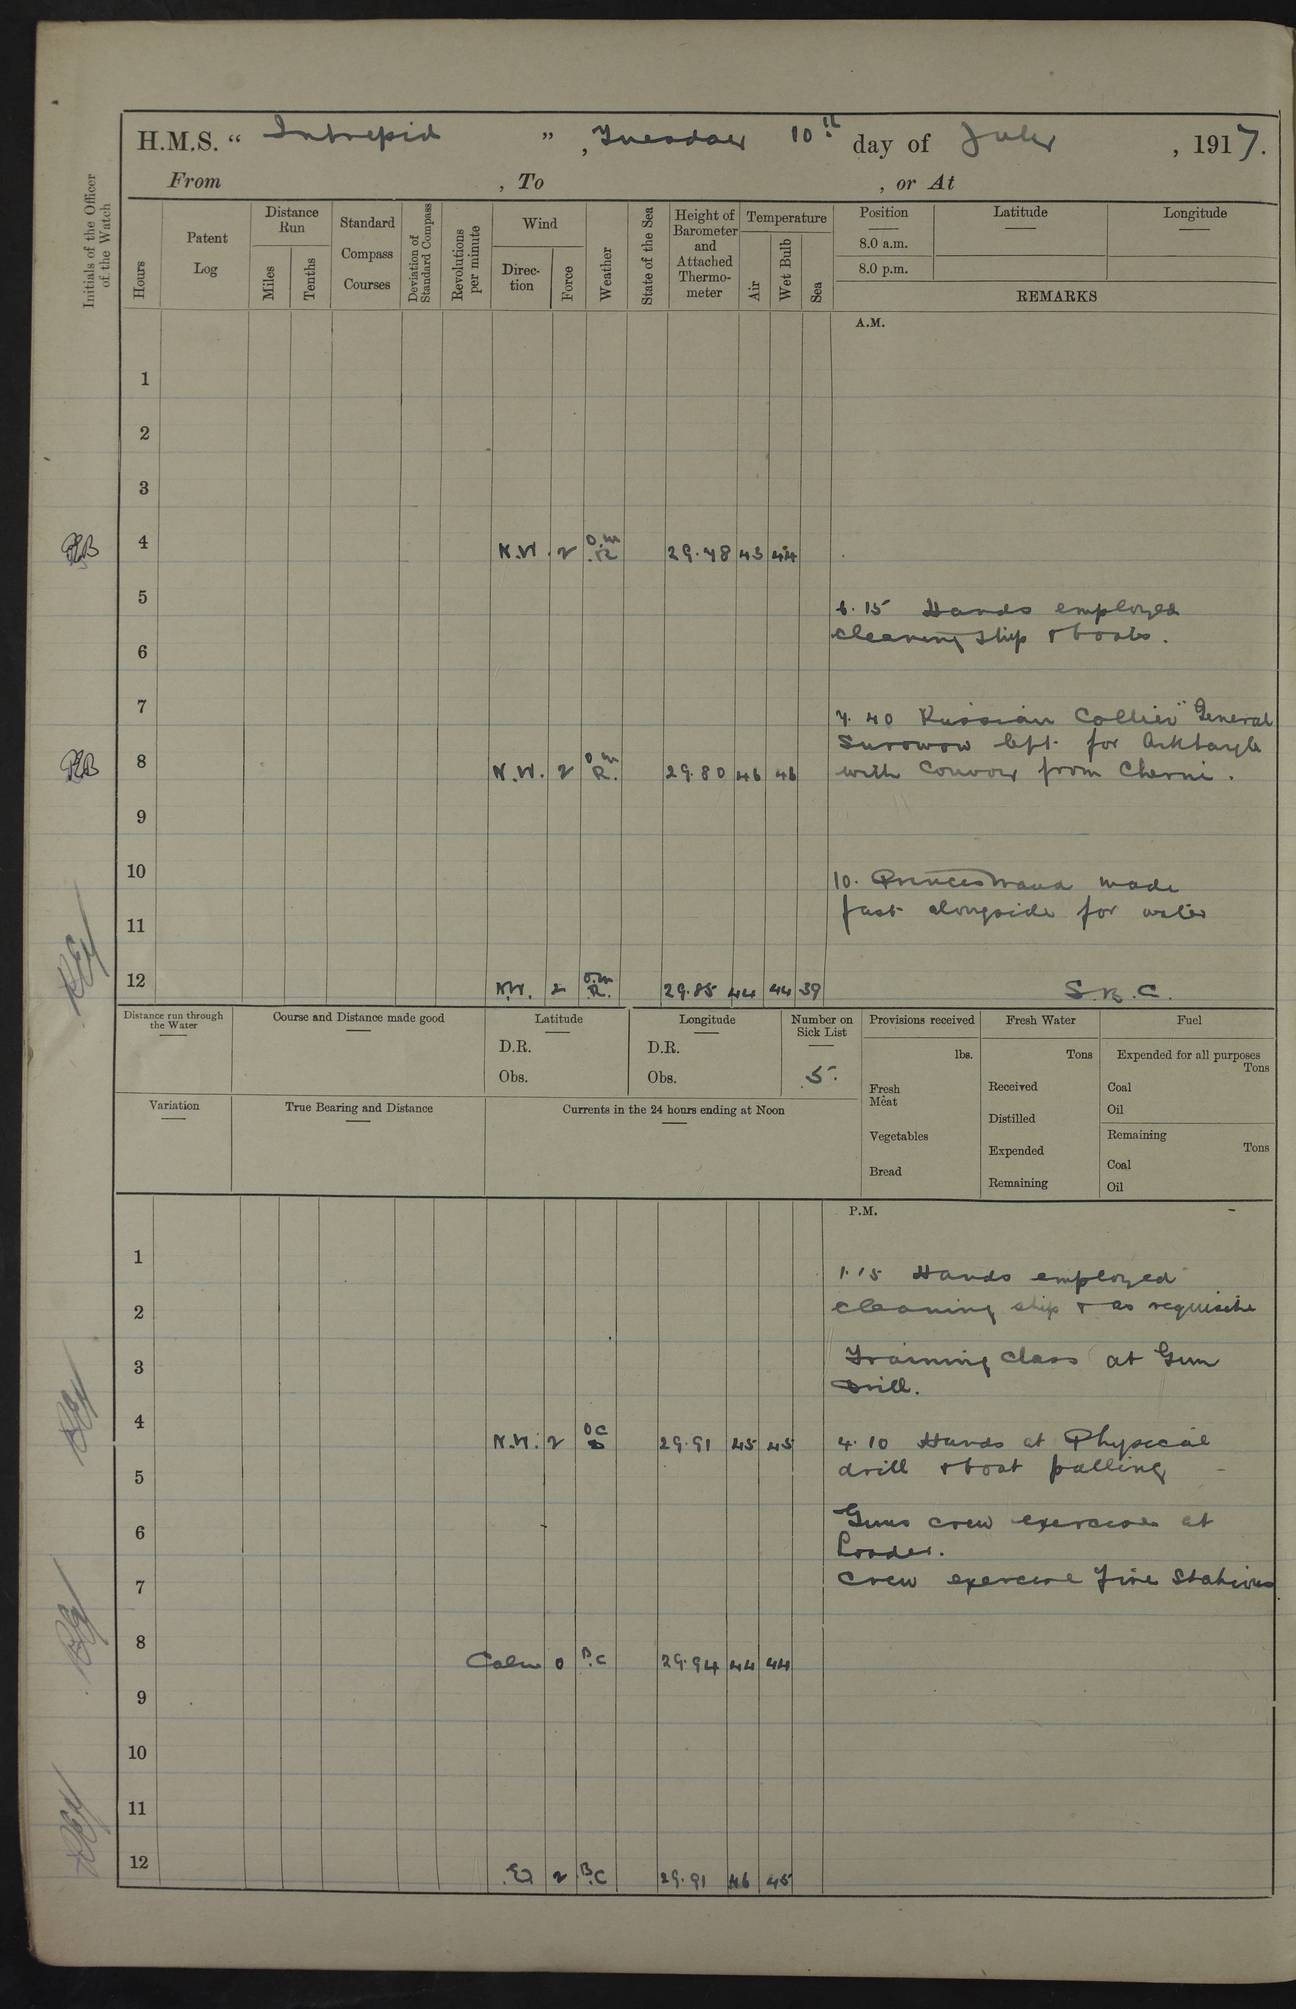 H.M.S. “ Intrepid ” , Tuesday 10th day of July , 1917.
From , To , or At
Initials of the Officer of the Watch
Hours
Patent Log
Distance Run
Miles
Tenths
Standard Compass Courses
Deviation of Standard Compass
Revolutions per minute
Wind
Direc-tion
Force
Weather
State of the Sea
Height of Barometer and Attached Thermo-meter
Temperature
Air
Wet Bulb
Sea
Position Latitude Longitude
8.0 a.m.
8.0 p.m.
REMARKS
A.M.
1
2
3
4 N.W. 2 O.M R 29.78 43 44
5
6.15 Hands employed
cleaning ship & boats.
6
7
7.40 Russian Collier "General
Surowow left for Arkhangle
with Convoy from Cherni.
8 N.W. 2 O.M R. 29.80 46 46
9
10
10. made
fast alongside for water
11
12 N.W. 2 O.M R. 29.85 44 44 39
S.B.C.
Distance run through the Water
Course and Distance made good
Latitude
D.R.
Obs.
Longitude
D.R.
Obs.
Number on Sick List
5.
Provisions received
lbs.
Fresh Meat
Vegetables
Bread
Fresh Water
Tons
Received
Distilled
Expended
Remaining
Fuel
Expended for all purposes
Tons
Coal
Oil
Remaining
Tons
Coal
Oil
Variation
True Bearing and Distance
Currents in the 24 hours ending at Noon
P.M.
1
1.15 Hands employed
cleaning ship & as requisite
2
3
Training Class at Gun
Drill.
4 N.W. 2 OC 29.91 45 45
4.10 Hands at Physical
drill & boat pulling
5
6
Guns crew exercise at
Loader.
7
Crew exercise Fire Stations
8 Calm 0 B.C 29.94 44 44
9
10
11
12 E 2 B.C 29.91 46 45